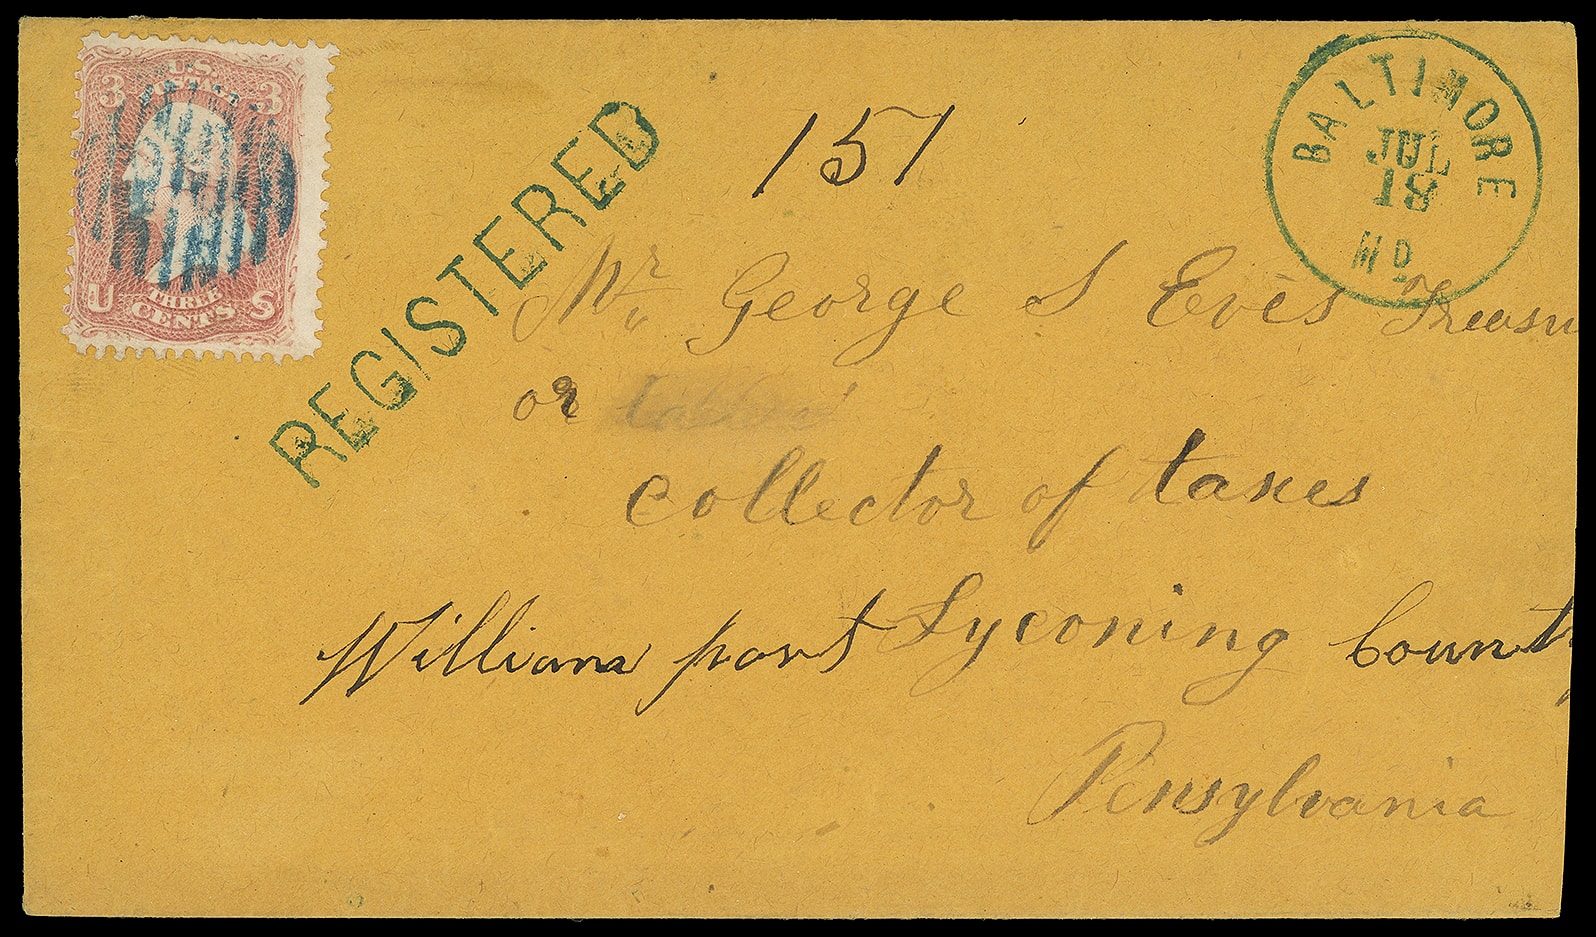 3 U.S. 3
THREE
U CENTS S
REGISTERED
151
BALTIMORE
JUL
18
MD.
Mr George S Eves Treasu
or
collector of taxes
Williams port Lycoming County
Pensylvania